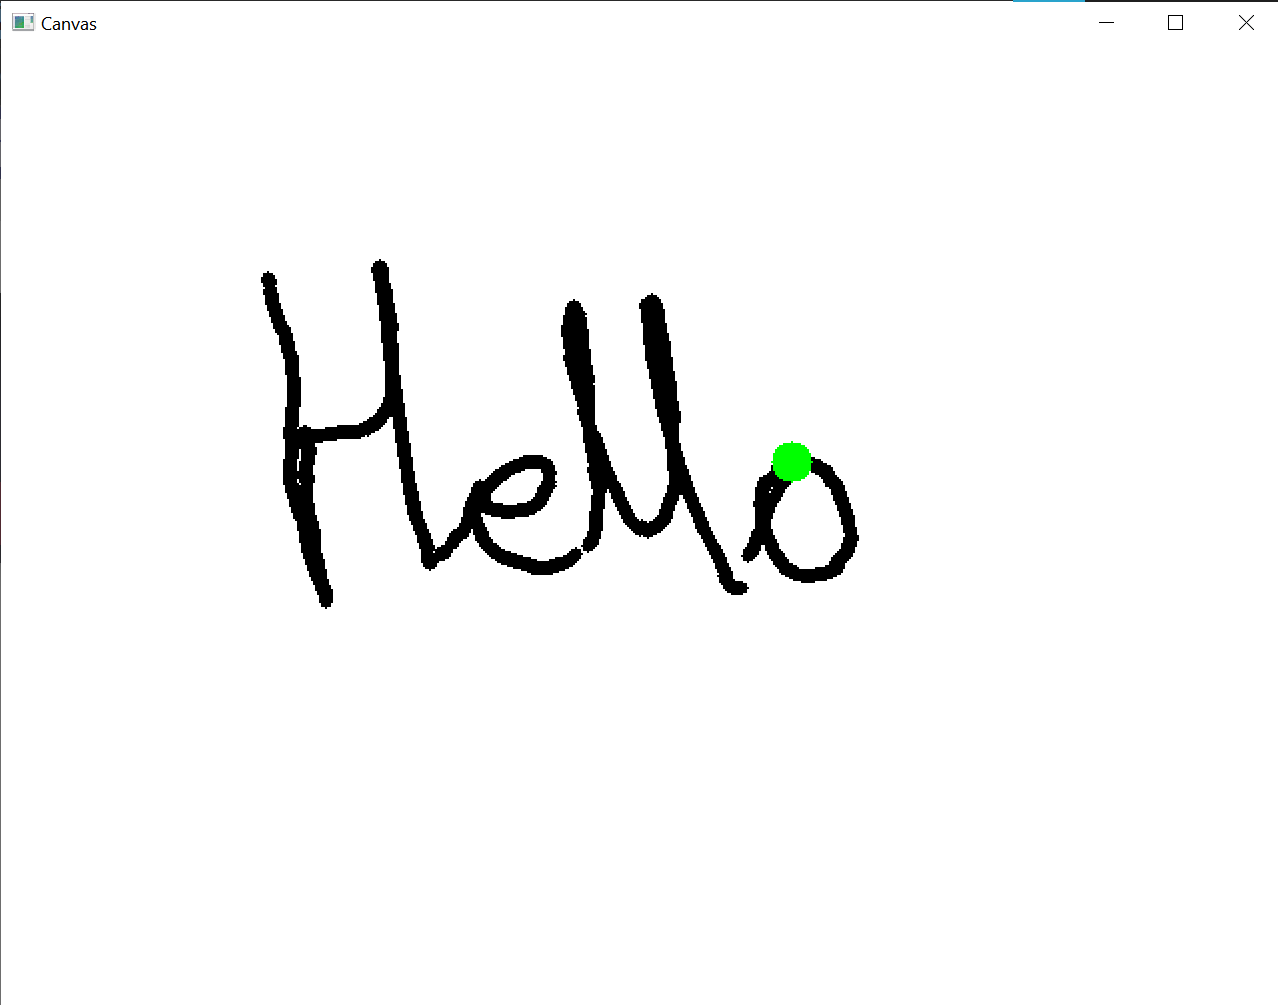 Canvas
Hello